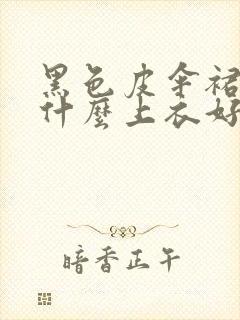 黑色皮傘裙
什麼上衣好
暗香正午